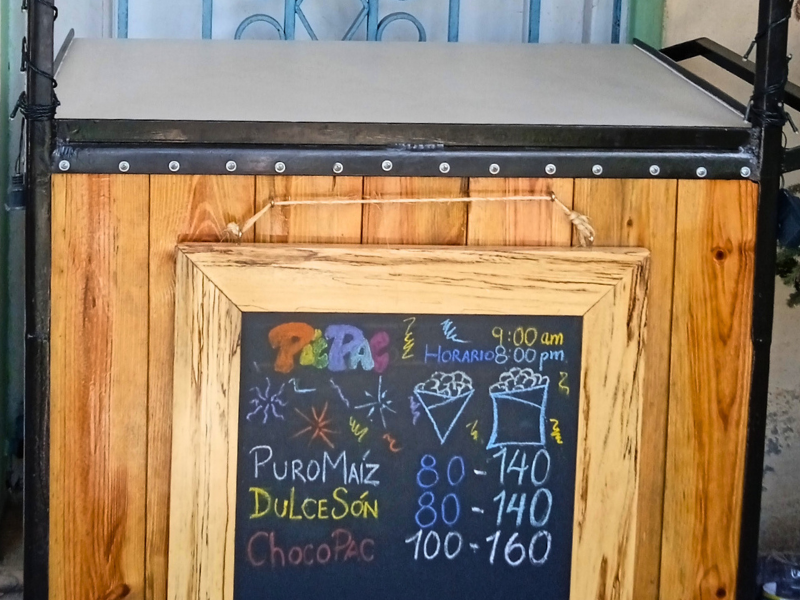 PACPAC
9:00 am
HORARIO 8:00 pm
PUROMAÍZ 80-140
DULCESÓN 80-140
CHOCOPAC 100-160